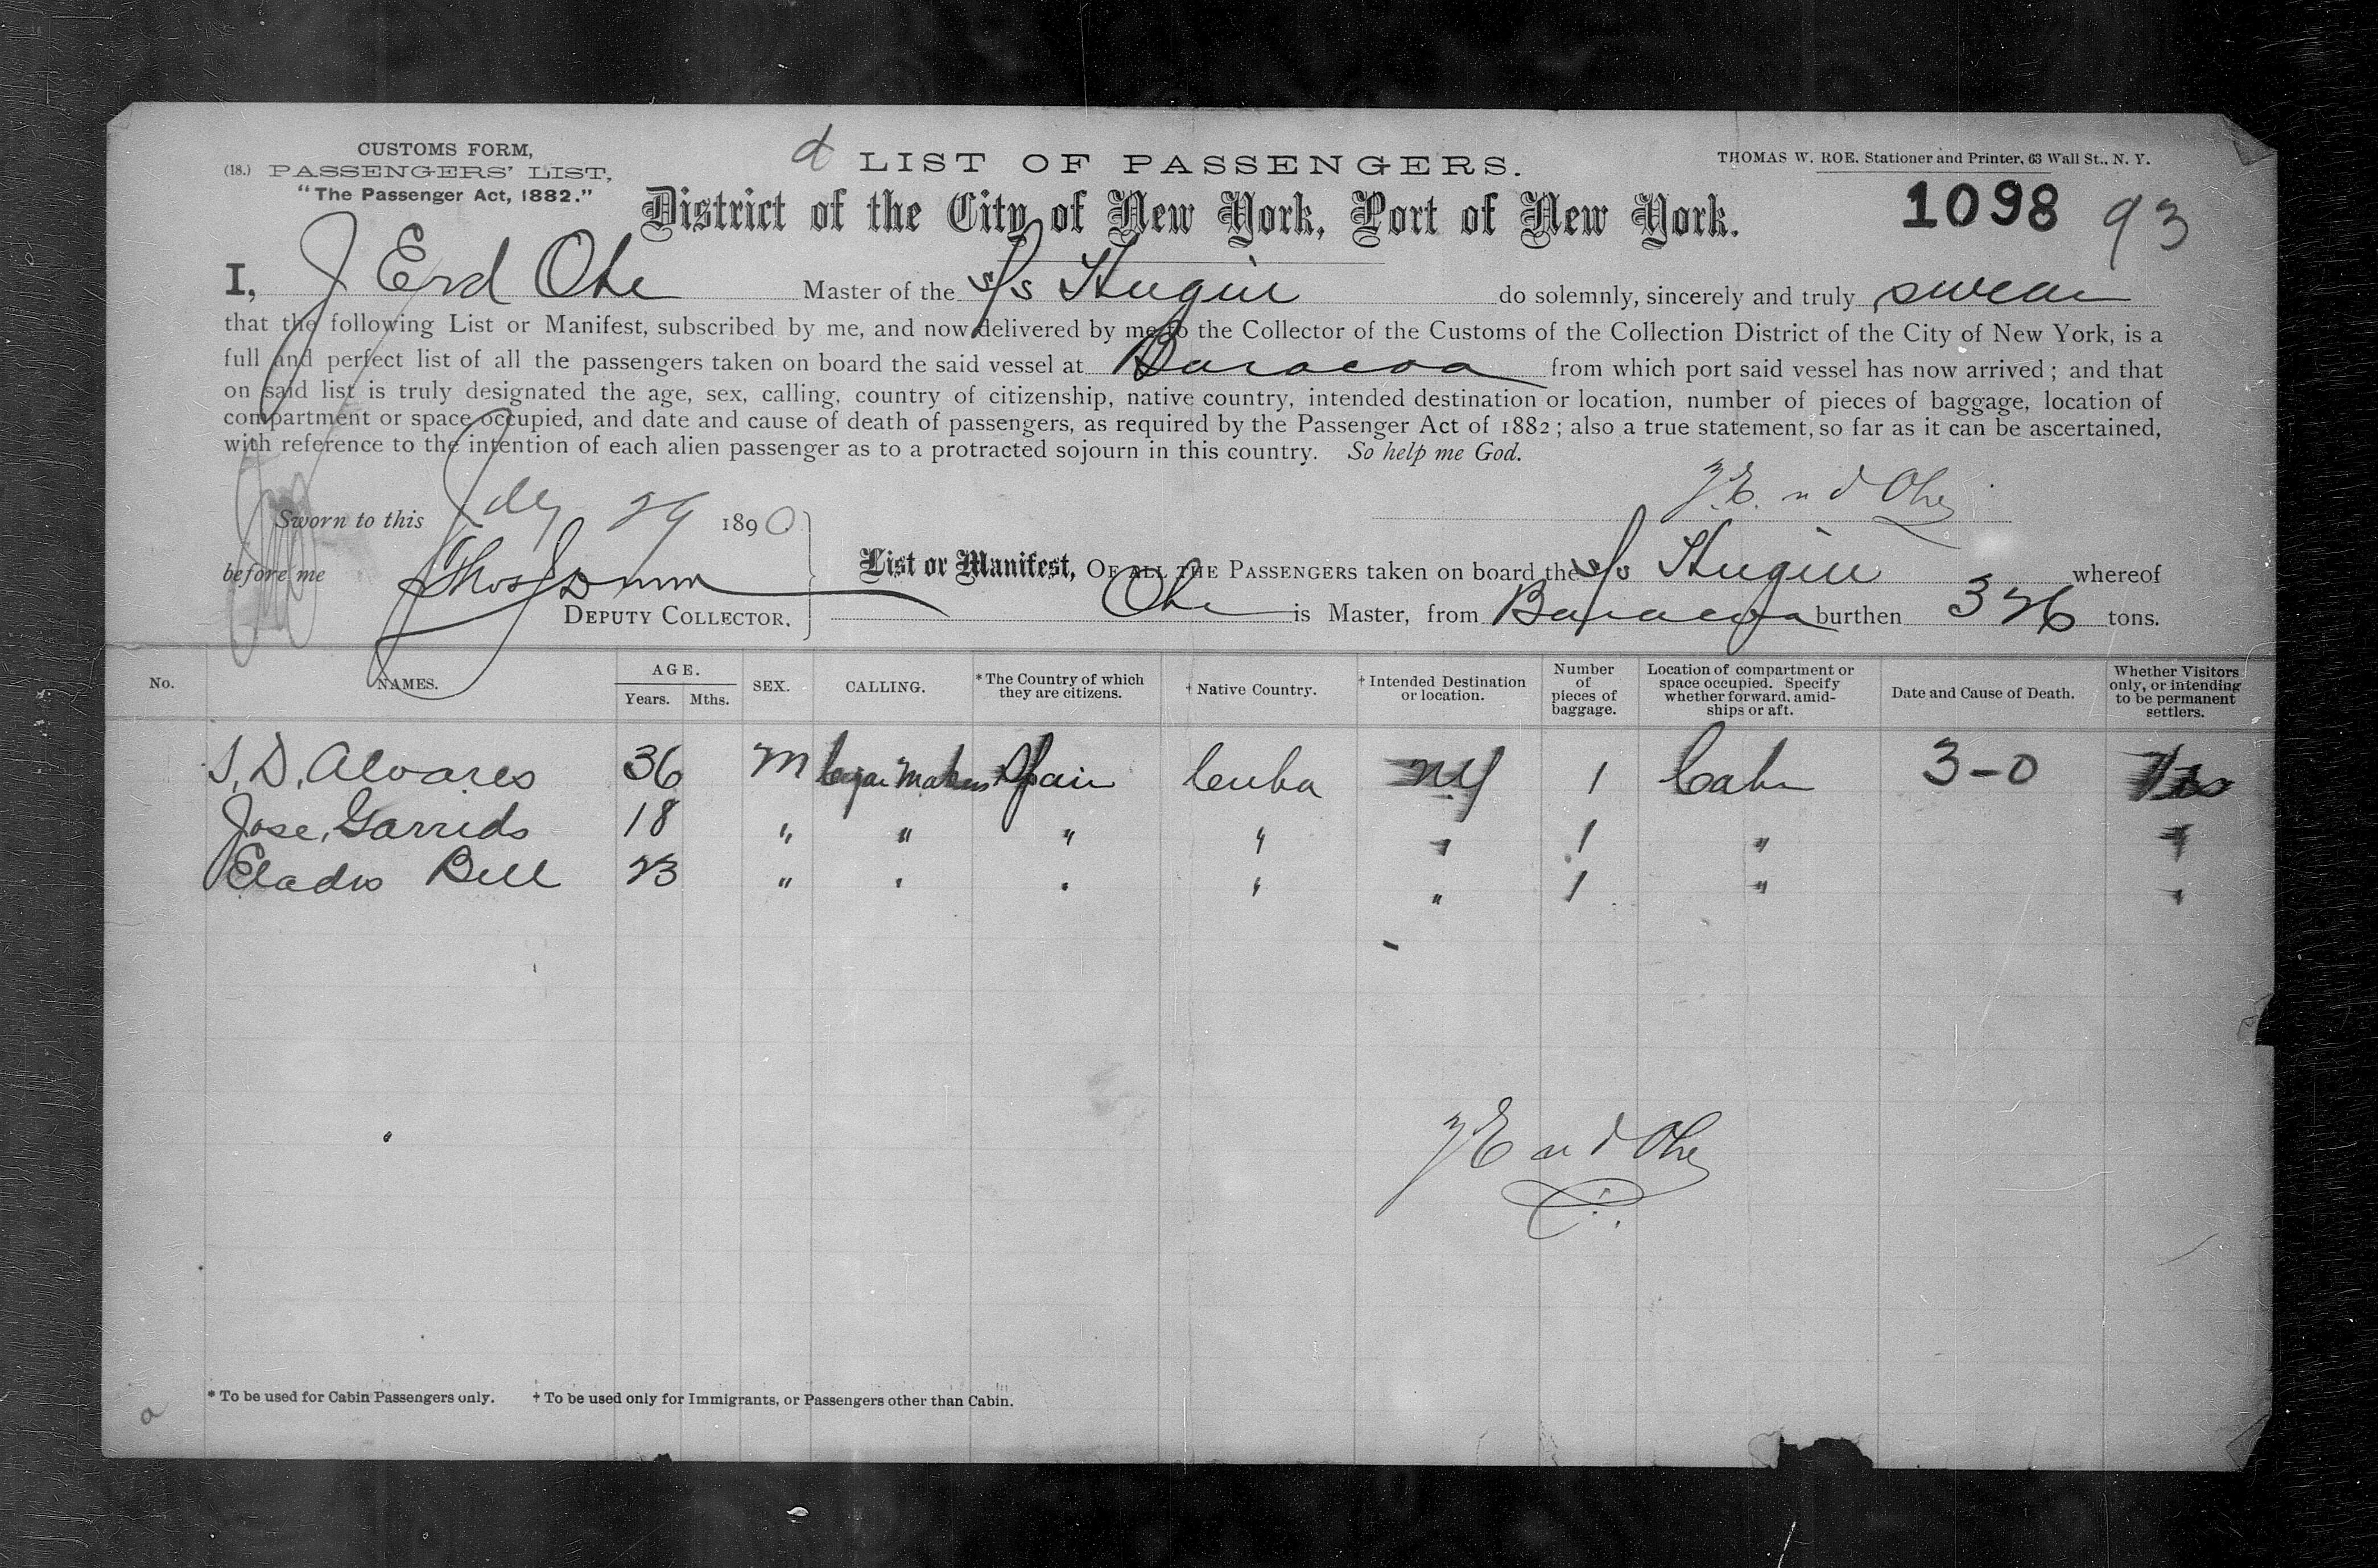 CUSTOMS FORM,
(18.) PASSENGERS' LIST,
"The Passenger Act, 1882."
d LIST OF PASSENGERS.
THOMAS W. ROE, Stationer and Printer, 63 Wall St., N. Y.
District of the City of New York, Port of New York.
1098 93
I, J Erd Ohe Master of the s/s Hugin do solemnly, sincerely and truly swear
that the following List or Manifest, subscribed by me, and now delivered by me to the Collector of the Customs of the Collection District of the City of New York, is a
full and perfect list of all the passengers taken on board the said vessel at Baracoa from which port said vessel has now arrived; and that
on said list is truly designated the age, sex, calling, country of citizenship, native country, intended destination or location, number of pieces of baggage, location of
compartment or space occupied, and date and cause of death of passengers, as required by the Passenger Act of 1882; also a true statement, so far as it can be ascertained,
with reference to the intention of each alien passenger as to a protracted sojourn in this country. So help me God.
Sworn to this July 29 1890
before me Thos J Dunn
DEPUTY COLLECTOR.
List or Manifest, OF ALL THE PASSENGERS taken on board the s/s Hugin whereof
Ohe is Master, from Baracoa burthen 326 tons.
No. NAMES. AGE. Years. Mths. SEX. CALLING. *The Country of which they are citizens. † Native Country. † Intended Destination or location. Number of pieces of baggage. Location of compartment or space occupied. Specify whether forward, amidships or aft. Date and Cause of Death. Whether Visitors only, or intending to be permanent settlers.
S. D. Alvares 36 M Cigar Makers Spain Cuba NY 1 Cabn 3-0 Yes
Jose Garrido 18 " " " " " 1 " "
Eladio Bell 23 " " " " " 1 " "
* To be used for Cabin Passengers only. † To be used only for Immigrants, or Passengers other than Cabin.
a